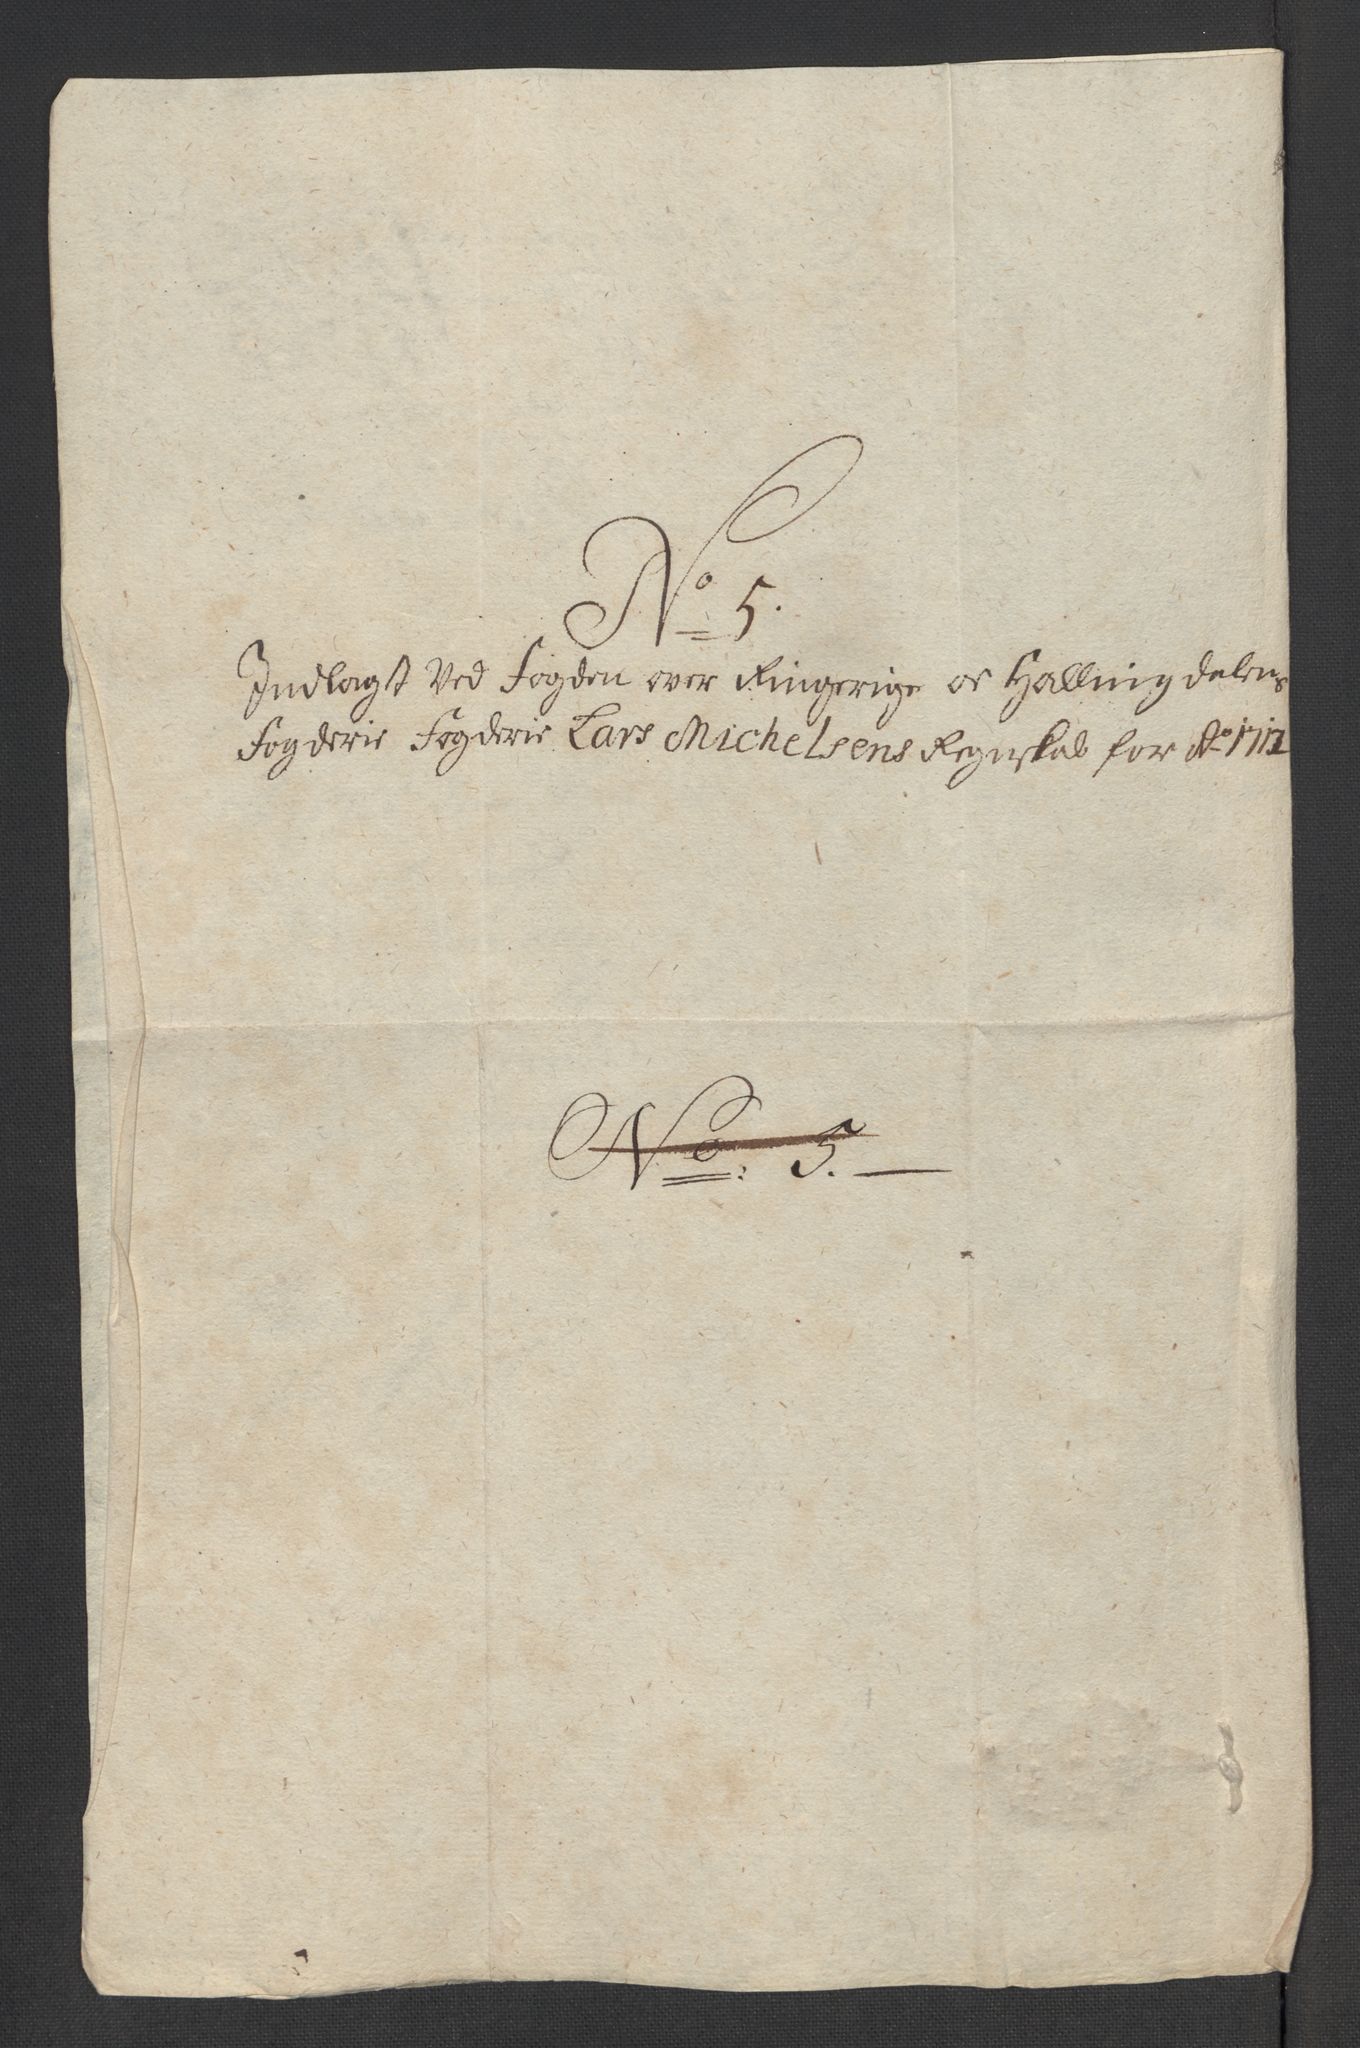 No 5.
Indlagt Ved Fogden over Ringerige oc Hallingdalens
Fogderie Fogderie Lars Michelsens Regnskab for Ao 1712
No: 5.